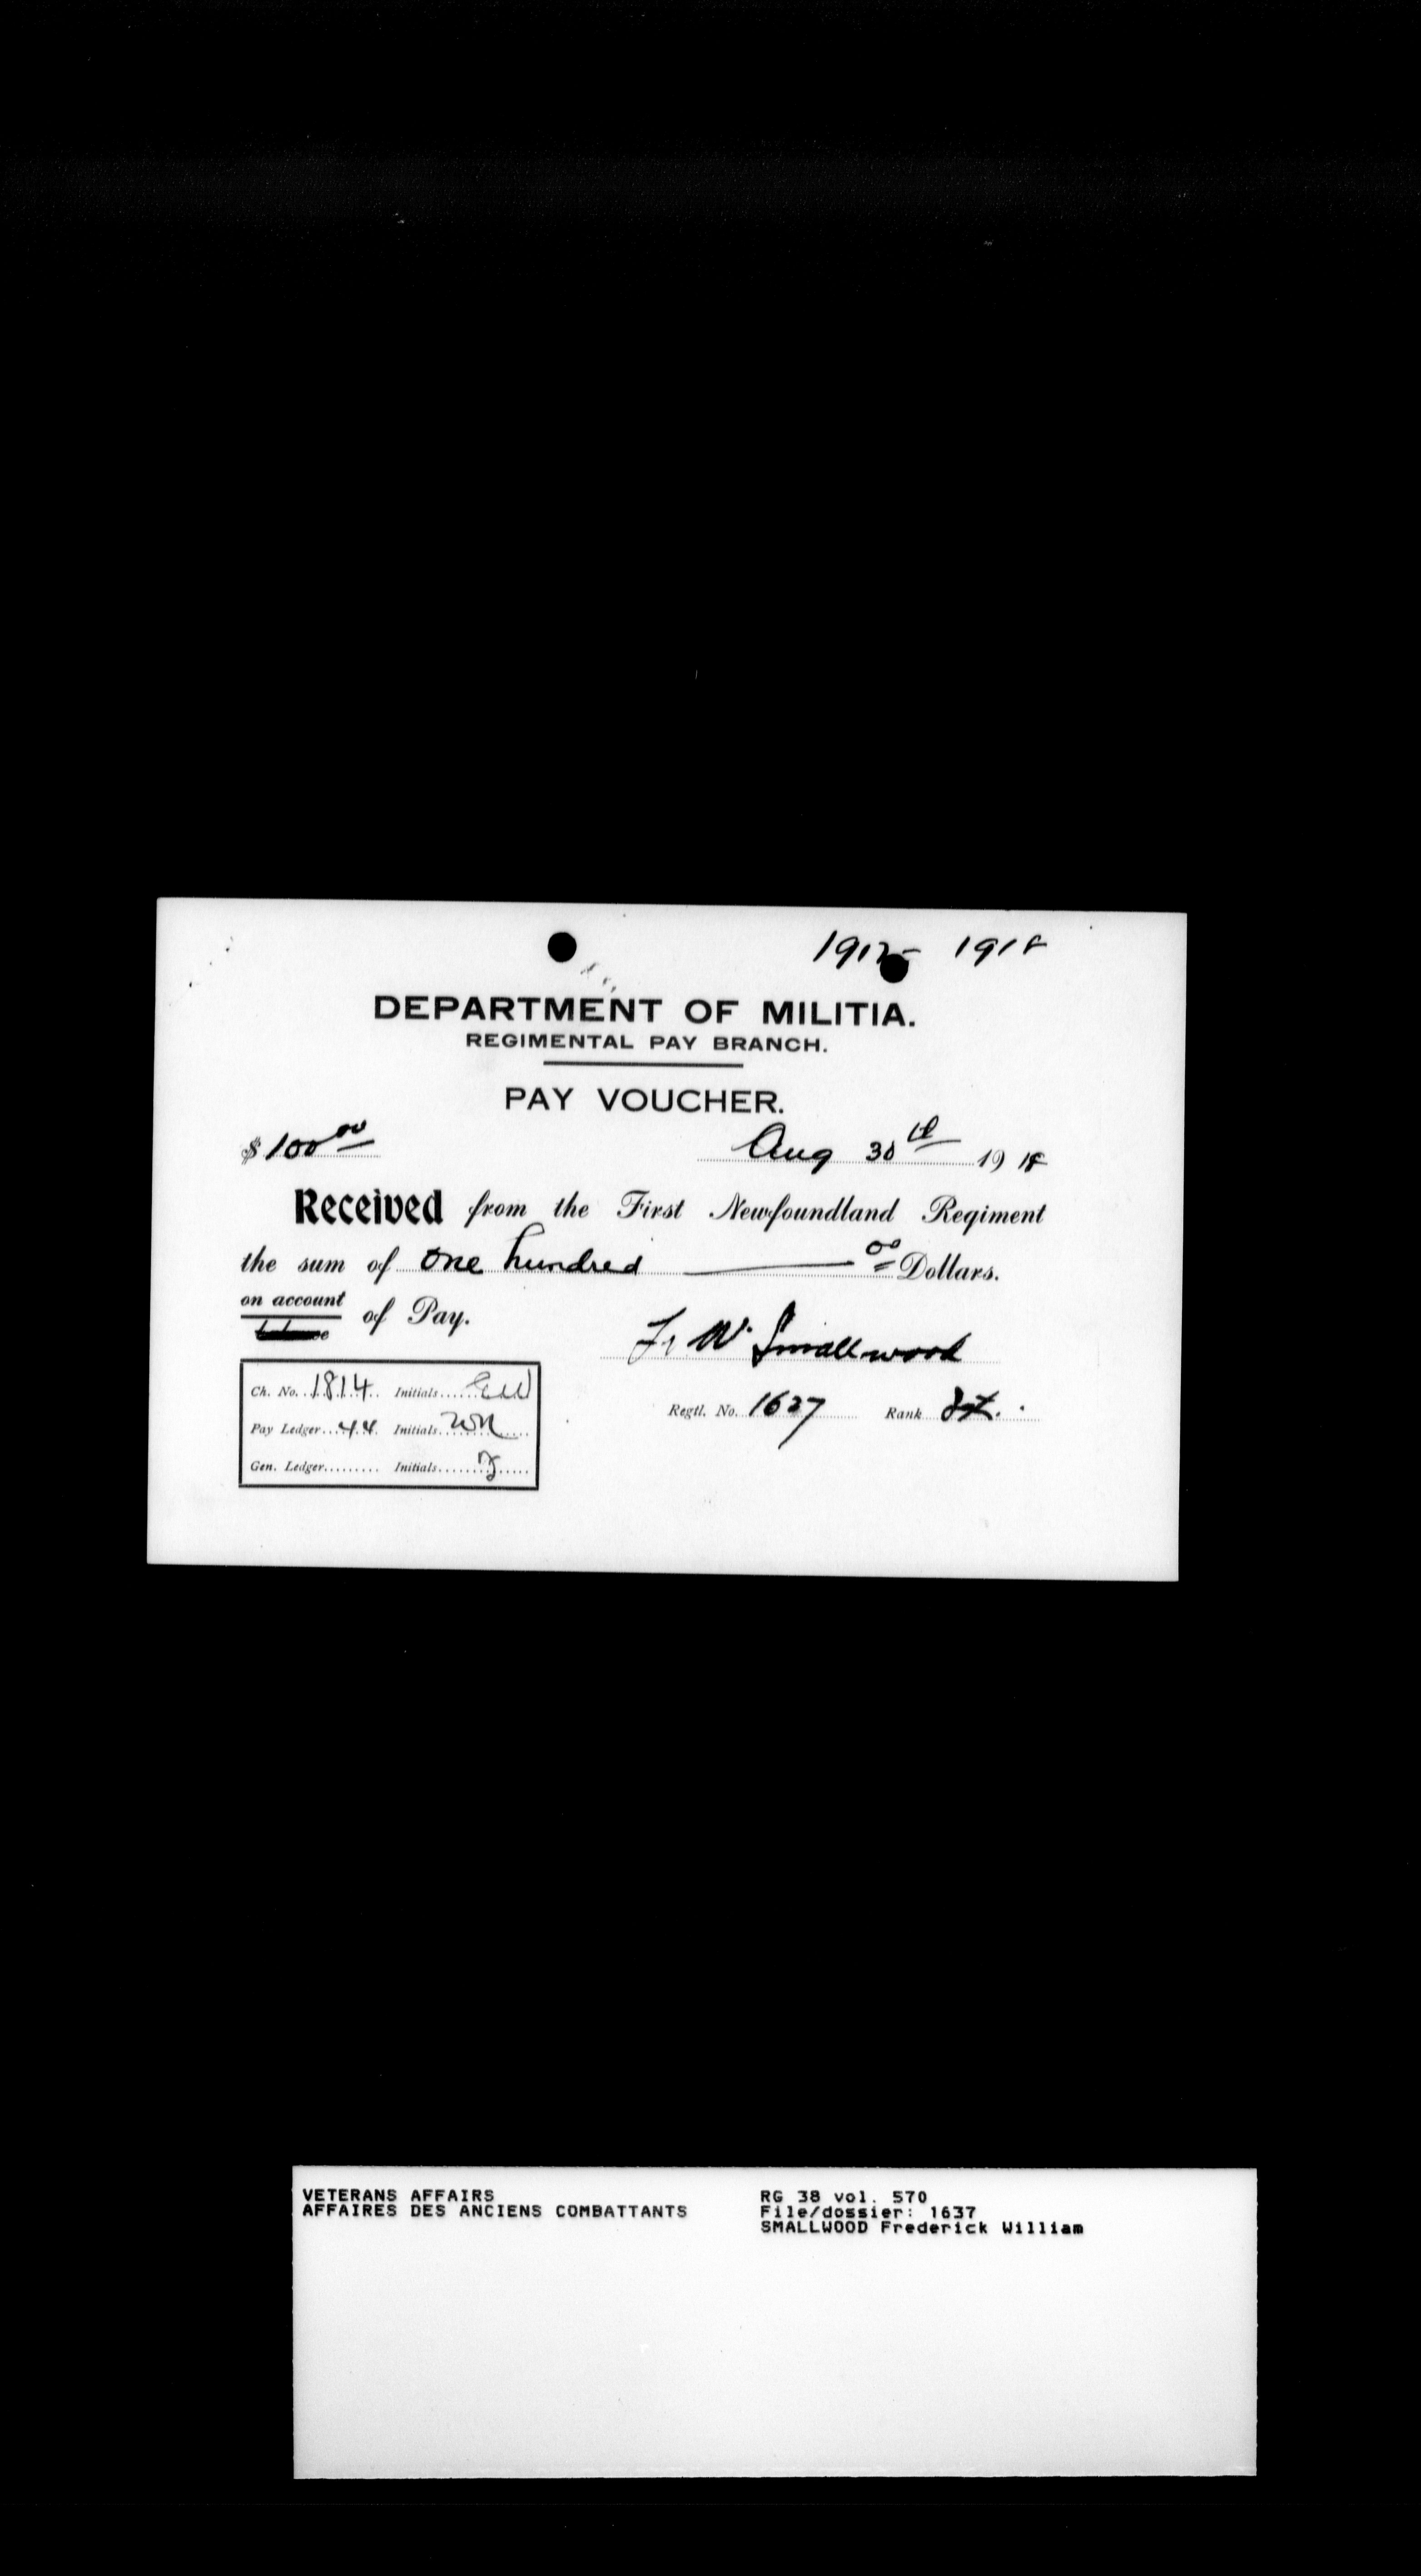 1918
DEPARTMENT OF MILITIA.
REGIMENTAL PAY BRANCH.
PAY VOUCHER.
$ 100 00 Aug 30th 1918
Received from the First Newfoundland Regiment
the sum of One hundred 00 Dollars.
on account
of Pay.
F. W. Smallwood
Ch. No. 1814 Initials EW
Regtl. No. 1637 Rank
Pay Ledger 44 Initials
Gen. Ledger Initials
VETERANS AFFAIRS RG 38 vol. 570
AFFAIRES DES ANCIENS COMBATTANTS File/dossier: 1637
SMALLWOOD Frederick William